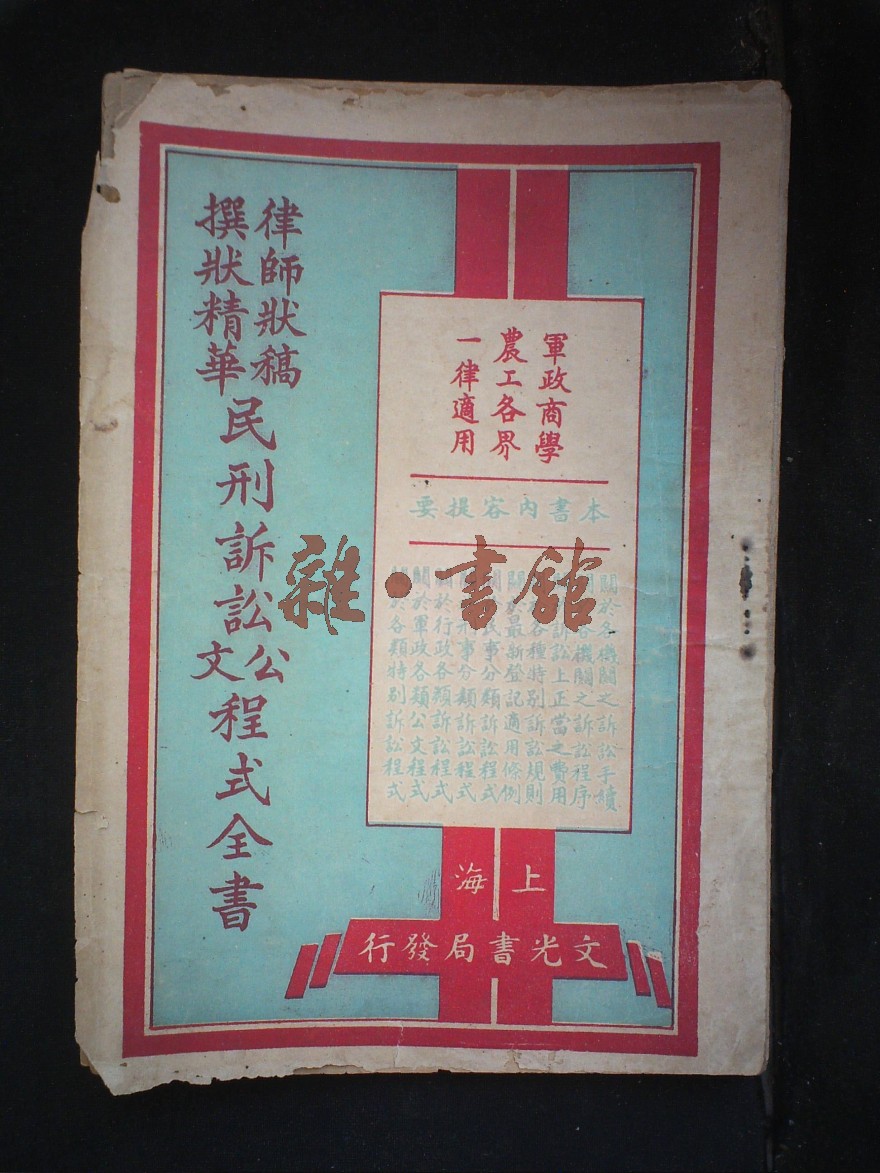 軍政商學
農工各界
一律適用
本書內容提要
關於各機關之訴訟手續
各機關之訴訟程序
訴訟上正當之費用
各種特別訴訟規則
關於最新登記適用條例
關於民事分類訴訟程式
刑事分類訴訟程式
關於行政各類訴訟程式
關於軍政各類公文程式
關於各類特別訴訟程式
律師狀稿
撰狀精華
民刑訴訟公文程式全書
上海
文光書局發行
雜·書館